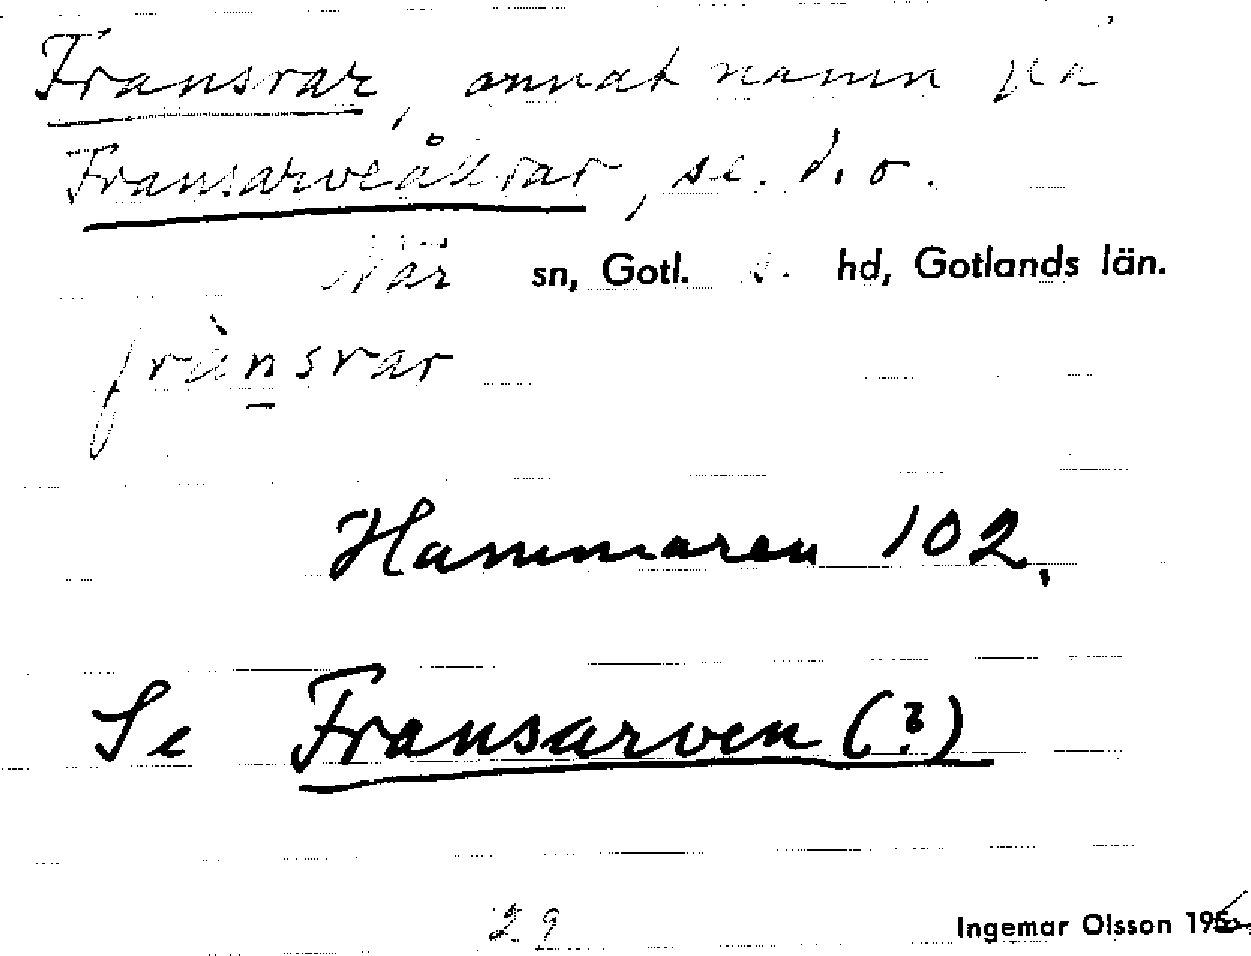 Fransvar, annat namn på
Fransarveåkrar, se. d. o.
När sn, Gotl. s. hd, Gotlands län.
frànsvar
Hammaren 102.
Se Fransarven (?)
29
Ingemar Olsson 195